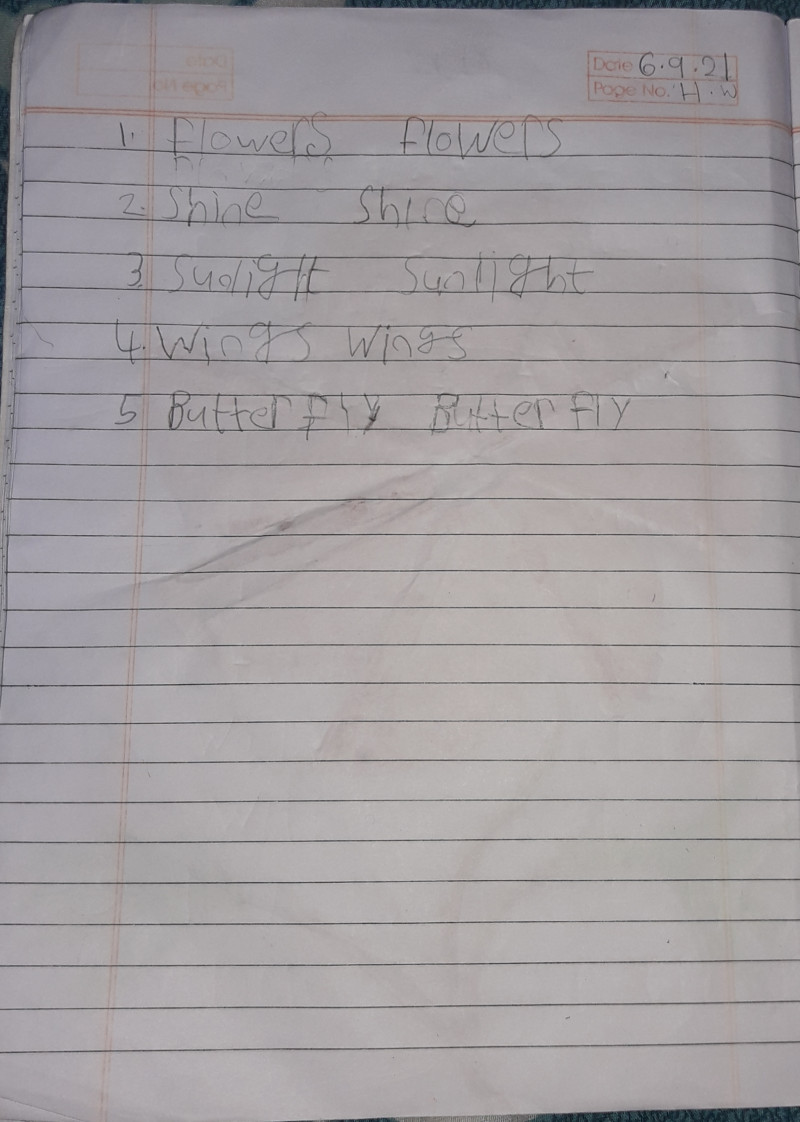 Date 6.9.21
Page No. H.W
1. flowers flowers
2. Shine Shine
3. Sudight Sunlight
4. Wings Wings
5 Butterfly Butterfly